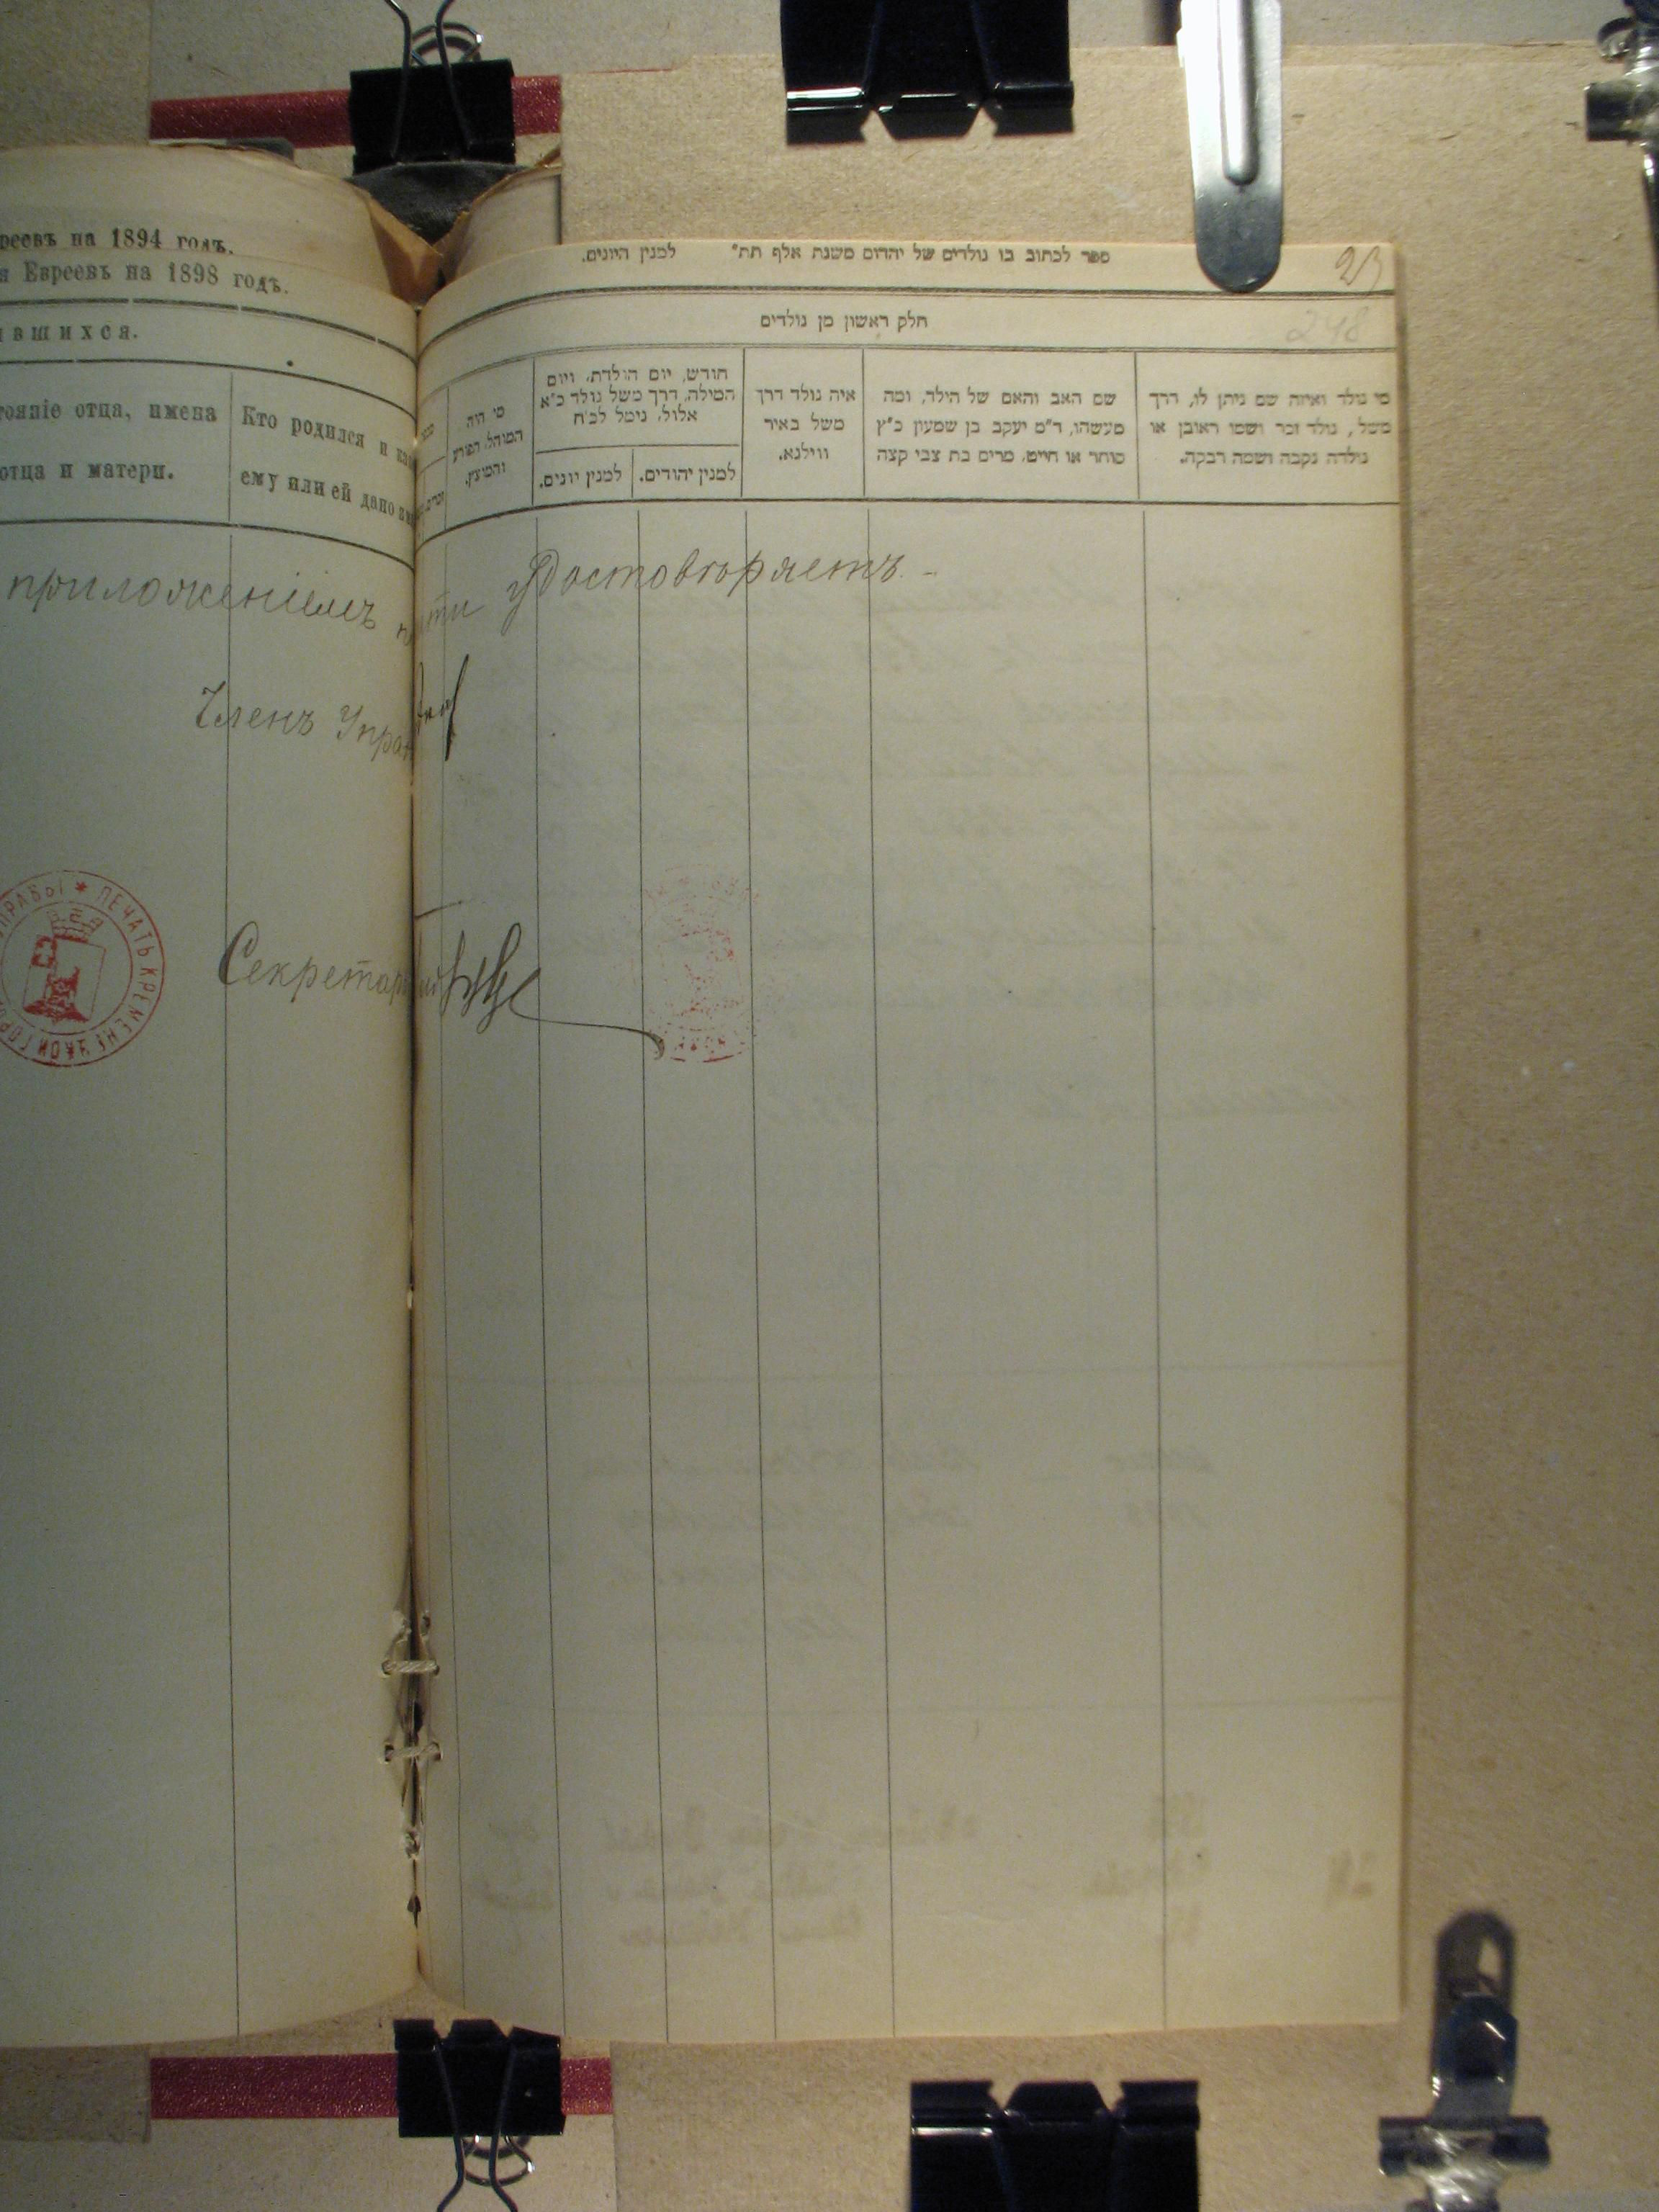 реевъ на 1894 годъ.
я Евреевъ на 1898 годъ.
вшихся.
тояніе отца, имена
отца и матери.
Кто родился и
ему или ей дано
приложеніемъ
Членъ Управ
Секретарь
ПЕЧАТЬ КРЕМЕНЧУКСКОЙ ГОРО УПРАВЫ
ספר לכתוב בו נולדים של יהדום משנת אלף תת״ למנין היונים.
23
248
חלק ראשון מן נולדים
מי היה
המוהל הפורע
והמוצץ.
חודש, יום הולדת, ויום
המילה, דרך משל נולד כ״א
אלול, נימל לכ״ח
למנין יונים.
למנין יהודים.
איה נולד דרך
משל באיר
ווילנא.
שם האב והאם של הילד, ומה
מעשהו, ד״מ יעקב בן שמעון כ״ץ
סוחר או חייט, מרים בת צבי קצה
מי נולד ואיזה שם ניתן לו, דרך
משל, נולד זכר ושמו ראובן או
נולדה נקבה ושמה רבקה.
удостовѣряетъ.-